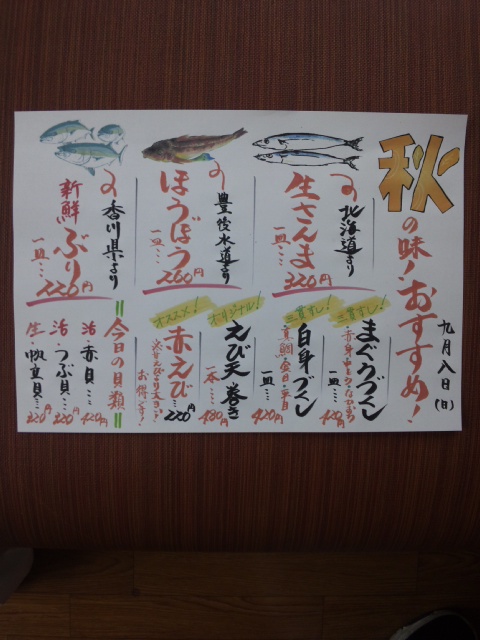 秋の味!おすすめ!
九月八日(日)
北海道より
生さんま
一皿…320円
豊後水道より
ほうぼう
一皿…260円
香川県より
新鮮ぶり
一皿…220円
三貫すし!
まぐろづくし
一皿…420円
三貫すし!
白身づくし
一皿…420円
オリジナル!
えび天巻き
一本…480円
オススメ!
赤えび…220円
お得です!
今日の貝類
活・赤貝…420円
活・つぶ貝…220円
生・帆立貝…220円